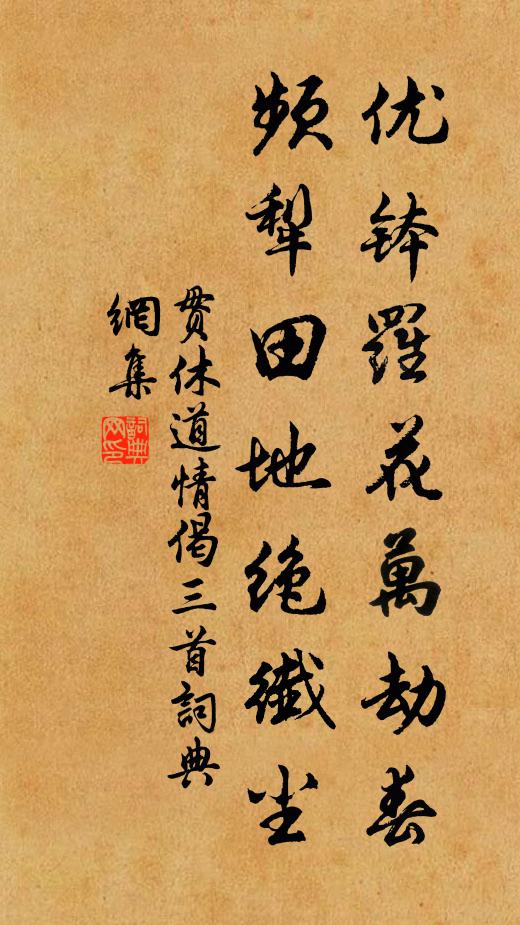 优钵羅花萬劫春
频犁田地绝纖尘
贯休道情偈三首詞典
網集
詞典
网印